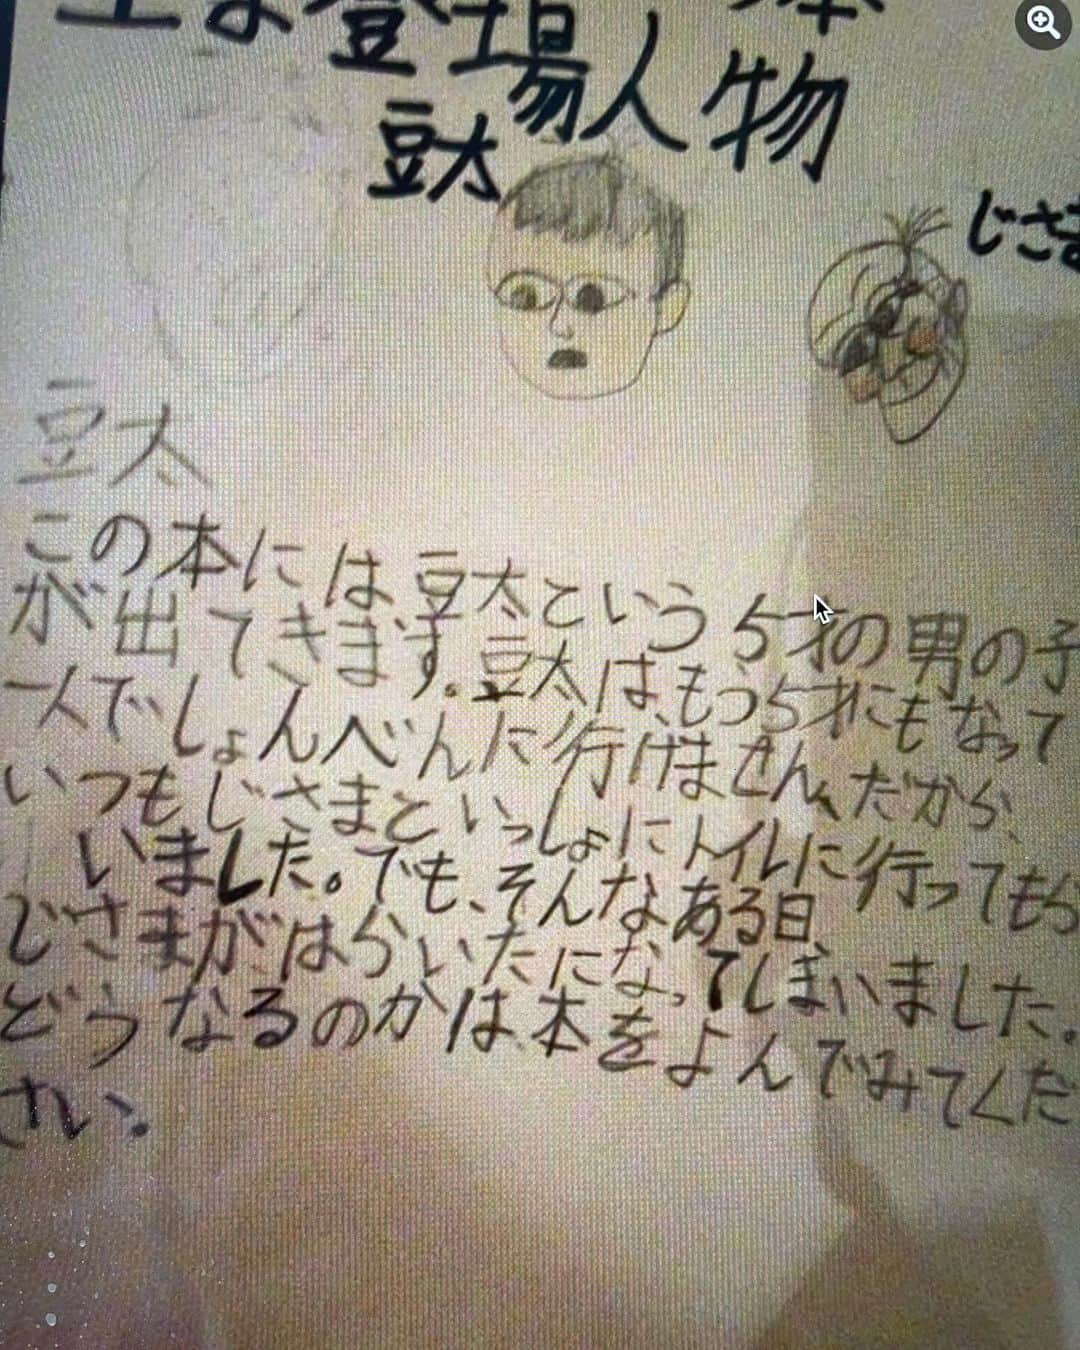 主な登場人物
豆太
じさま
豆太
この本には、豆太という5才の男の子
が出てきます。豆太は、もう5才にもなって
一人でしょんべんに行けません、だから、
いつもじさまといっしょにトイレに行ってもら
いました。でも、そんなある日、
じさまがはらいたになってしまいました。
どうなるのかは本をよんでみてくだ
さい。